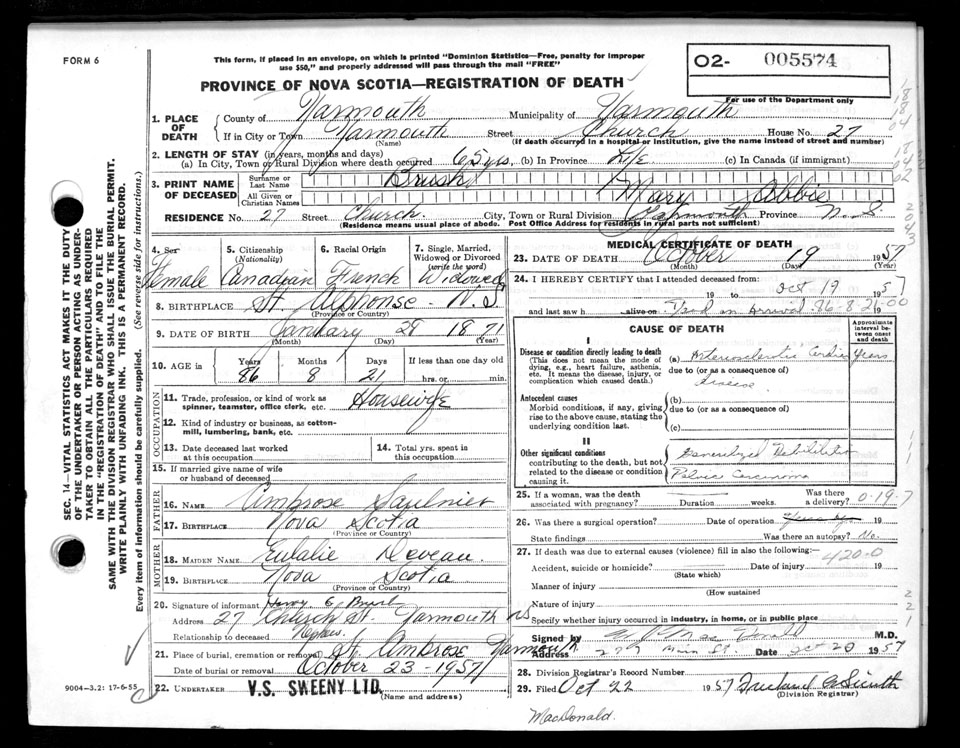 FORM 6
This form, if placed in an envelope, on which is printed "Dominion Statistics—Free, penalty for improper
use $50," and properly addressed will pass through the mail "FREE"
O2- 005574
For use of the Department only
PROVINCE OF NOVA SCOTIA—REGISTRATION OF DEATH
1. PLACE OF DEATH
County of Yarmouth Municipality of Yarmouth
If in City or Town Yarmouth Street Church House No. 27
(Name) (If death occurred in a hospital or institution, give the name instead of street and number)
2. LENGTH OF STAY (in years, months and days)
(a) In City, Town or Rural Division where death occurred 65 yrs. (b) In Province Life (c) In Canada (if immigrant)
3. PRINT NAME OF DECEASED
Surname or Last Name Brush
All Given or Christian Names Mary Abbie
RESIDENCE No. 27 Street Church. City, Town or Rural Division Yarmouth Province N.S
(Residence means usual place of abode. Post Office Address for residents in rural parts not sufficient)
4. Sex Female
5. Citizenship (Nationality) Canadian
6. Racial Origin French
7. Single, Married, Widowed or Divorced (write the word) Widowed
8. BIRTHPLACE St. Alphonse - N.S
(Province or Country)
9. DATE OF BIRTH January 28 1871
(Month) (Day) (Year)
10. AGE in Years 86 Months 8 Days 21 If less than one day old hrs. or min.
OCCUPATION
11. Trade, profession, or kind of work as spinner, teamster, office clerk, etc. Housewife
12. Kind of industry or business, as cotton-mill, lumbering, bank, etc.
13. Date deceased last worked at this occupation
14. Total yrs. spent in this occupation
15. If married give name of wife or husband of deceased
FATHER
16. NAME Ambrose Saulnier
17. BIRTHPLACE Nova Scotia
(Province or Country)
MOTHER
18. MAIDEN NAME Eulalie Deveau.
19. BIRTHPLACE Nova Scotia
(Province or Country)
20. Signature of informant Harry E
Address 27 Church St. Yarmouth NS
Relationship to deceased Nephew.
21. Place of burial, cremation or removal St. Ambrose Yarmouth
Date of burial or removal October 23 - 1957
22. UNDERTAKER V.S. SWEENY LTD.
(Name and address)
9004—3.2: 17-6-55
MEDICAL CERTIFICATE OF DEATH
23. DATE OF DEATH October 19 1957
(Month) (Day) (Year)
24. I HEREBY CERTIFY that I attended deceased from:
19 to Oct 19 1957
and last saw h alive on Dead on Arrival. 86-8-21-00
CAUSE OF DEATH
Approximate interval between onset and death
I
Disease or condition directly leading to death
(This does not mean the mode of dying, e.g., heart failure, asthenia, etc. It means the disease, injury, or complication which caused death.)
(a) Arteriosclerotic Cardiac Years
due to (or as a consequence of)
Disease
Antecedent causes
Morbid conditions, if any, giving rise to the above cause, stating the underlying condition last.
(b)
due to (or as a consequence of)
(c)
II
Other significant conditions
contributing to the death, but not related to the disease or condition causing it.
Generalized Debilitation
Pelvic Carcinoma
25. If a woman, was the death associated with pregnancy? Duration weeks. Was there a delivery? 0-19-7
26. Was there a surgical operation? Date of operation 19
State findings Was there an autopsy? No.
27. If death was due to external causes (violence) fill in also the following:—
420-0
Accident, suicide or homicide? Date of injury 19
(State which)
Manner of injury
(How sustained)
Nature of injury
Specify whether injury occurred in industry, in home, or in public place
Signed by MacDonald M.D.
Address 279 Main St. Date Oct 20 1957
28. Division Registrar's Record Number
29. Filed Oct 22 1957
(Division Registrar)
MacDonald.
SEC. 14—VITAL STATISTICS ACT MAKES IT THE DUTY
OF THE UNDERTAKER OR PERSON ACTING AS UNDER-
TAKER TO OBTAIN ALL THE PARTICULARS REQUIRED
IN THE "REGISTRATION OF DEATH" AND TO FILE THE
SAME WITH THE DIVISION REGISTRAR WHO SHALL ISSUE THE BURIAL PERMIT.
WRITE PLAINLY WITH UNFADING INK. THIS IS A PERMANENT RECORD.
Every item of information should be carefully supplied. (See reverse side for instructions.)